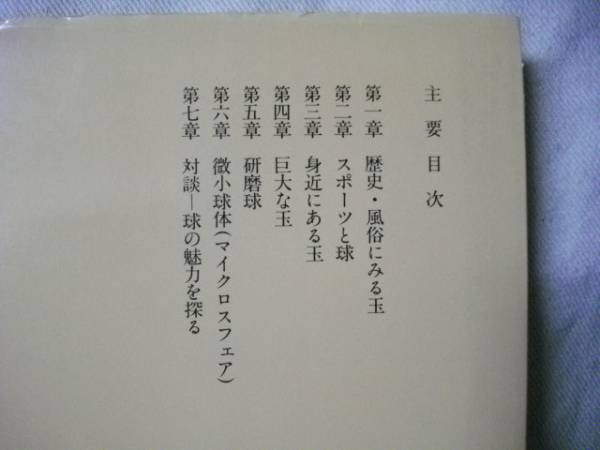 主要目次
第一章 歴史・風俗にみる玉
第二章 スポーツと球
第三章 身近にある玉
第四章 巨大な玉
第五章 研磨球
第六章 微小球体(マイクロスフェア)
第七章 対談―球の魅力を探る